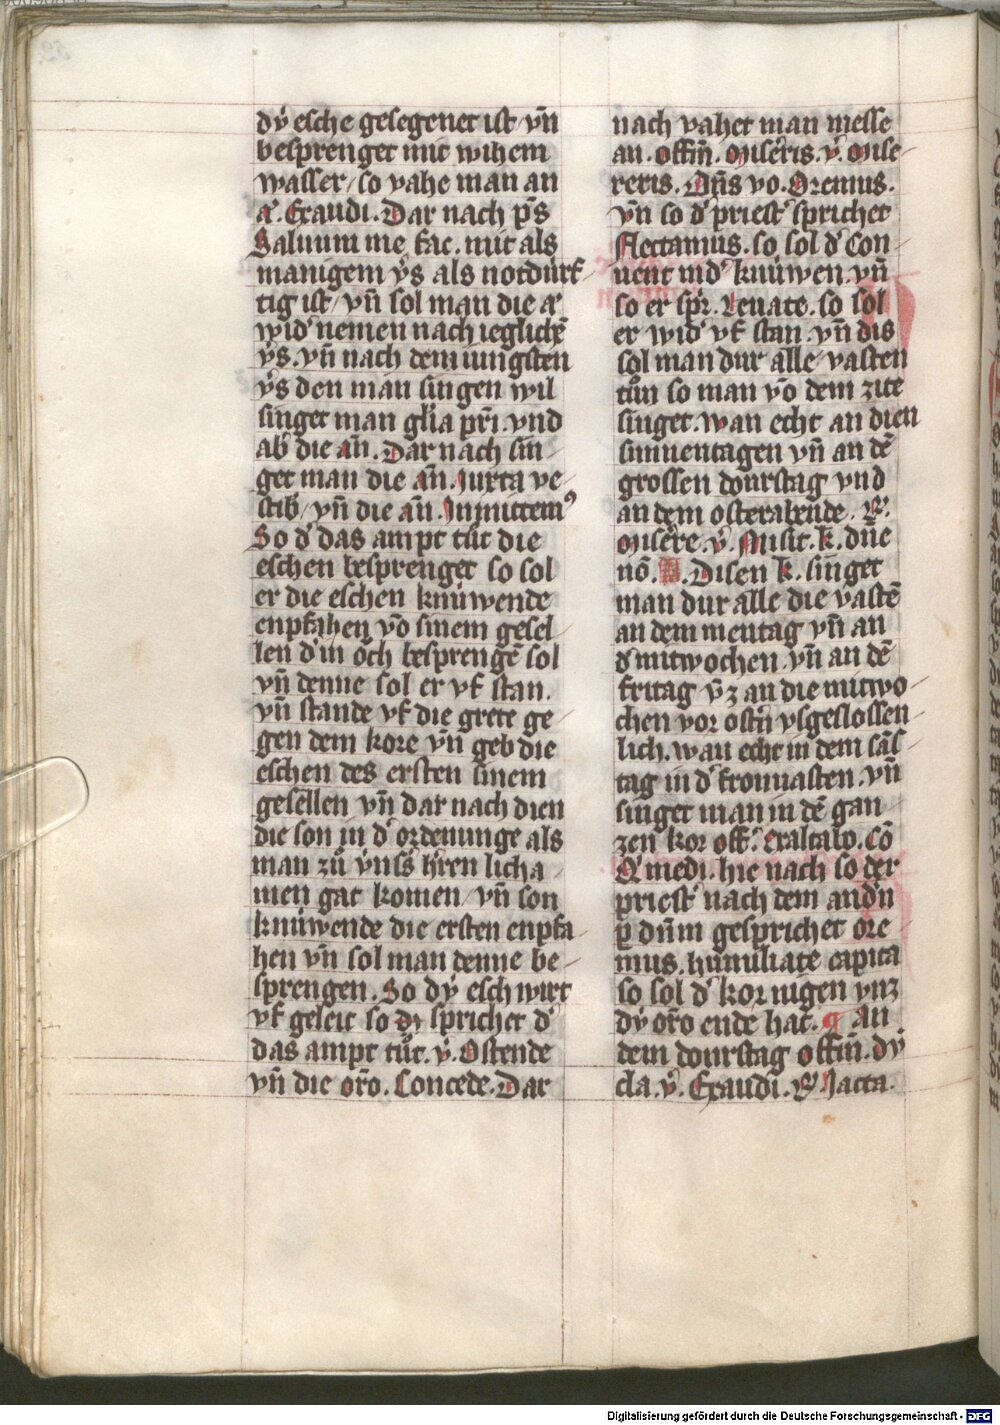 dÿ esche gesegenet ist / vn̄
besprenget mit wihem
wasser / so vahe man an
a͛. Exaudi. Dar nach p̄s
Saluum me fac. mit als
manigem v̓s als notdúrf
tig ist / vn̄ sol man die a͛
wid͛ nemen nach ieglichē
v̓s. vn̄ nach dem iungsten
v̓s den man singen wil
singet man gl̄ia pr̄i. vnd
ab͛ die an̄. Dar nach sin
get man die an̄. Juxta ve
stib̄ / vn̄ die an̄. Inmittem᷒
So d͛ das ampt tůt die
eschen besprenget so sol
er die eschen knúwende
enpfahen vō sinem gesel
len d͛ in ŏch besprengē sol
vn̄ denne sol er vf stan.
vn̄ stande vf die grete ge
gen dem kore vn̄ geb die
eschen des ersten sinem
gesellen vn̄ dar nach dien
die son in d͛ ordenunge als
man zů v́ns͛s h̄ren licha
men gat komen / vn̄ son
knúwende die ersten enpfa
hen vn̄ sol man denne be
sprengen. So dÿ esch wirt
vf geleit so dz sprichet d͛
das ampt tůt. v̓. Ostende
vn̄ die or̄o. Concede. Dar
nach vahet man messe
an. offm̄. Mis͛eris. v̓. Mise
reris. Dn̄s vo. Oremus.
vn̄ so d͛ priest͛ sprichet
flectamus. so sol d͛ Con
uent nid͛ knúwen. vn̄
so er spr̄. Leuate. so sol
er wid͛ vf stan. vn̄ dis
sol man dur alle vasten
tůn so man vō dem zite
singet. wan echt an dien
sunnentagen vn̄ an dē
grossen donrstag vnd
an dem osterabende. R̓.
Mis͛ere. v̓. Misit. k. dn̄e
nō. Disen k. singet
man dur alle die vastē
an dem mentag vn̄ an
d͛ mitwochen. vn̄ an dē
fritag v̄z an die mitwo
chen vor ostn̄ vsgeslossen
lich. wan echt in dem sās
tag in d͛ fronuasten. vn̄
singet man in dē gan
zen kor off͛. Exaltabo. Cō
Q͛ medi. hie nach so der
priest͛ nach dem and͛n
ꝑ dn̄m gesprichet ore
mus. humiliate capita
so sol d͛ kor nigen vnz
dÿ or̄o ende hat. ¶ An
dem donrstag offm̄. dÿ
cla. v̓. Exaudi. R̓. Jacta.
Digitalisierung gefördert durch die Deutsche Forschungsgemeinschaft - DFG